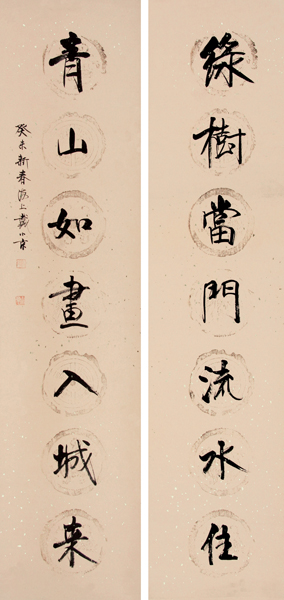 綠樹當門流水住
青山如畫入城来
癸未新春海上戴小京